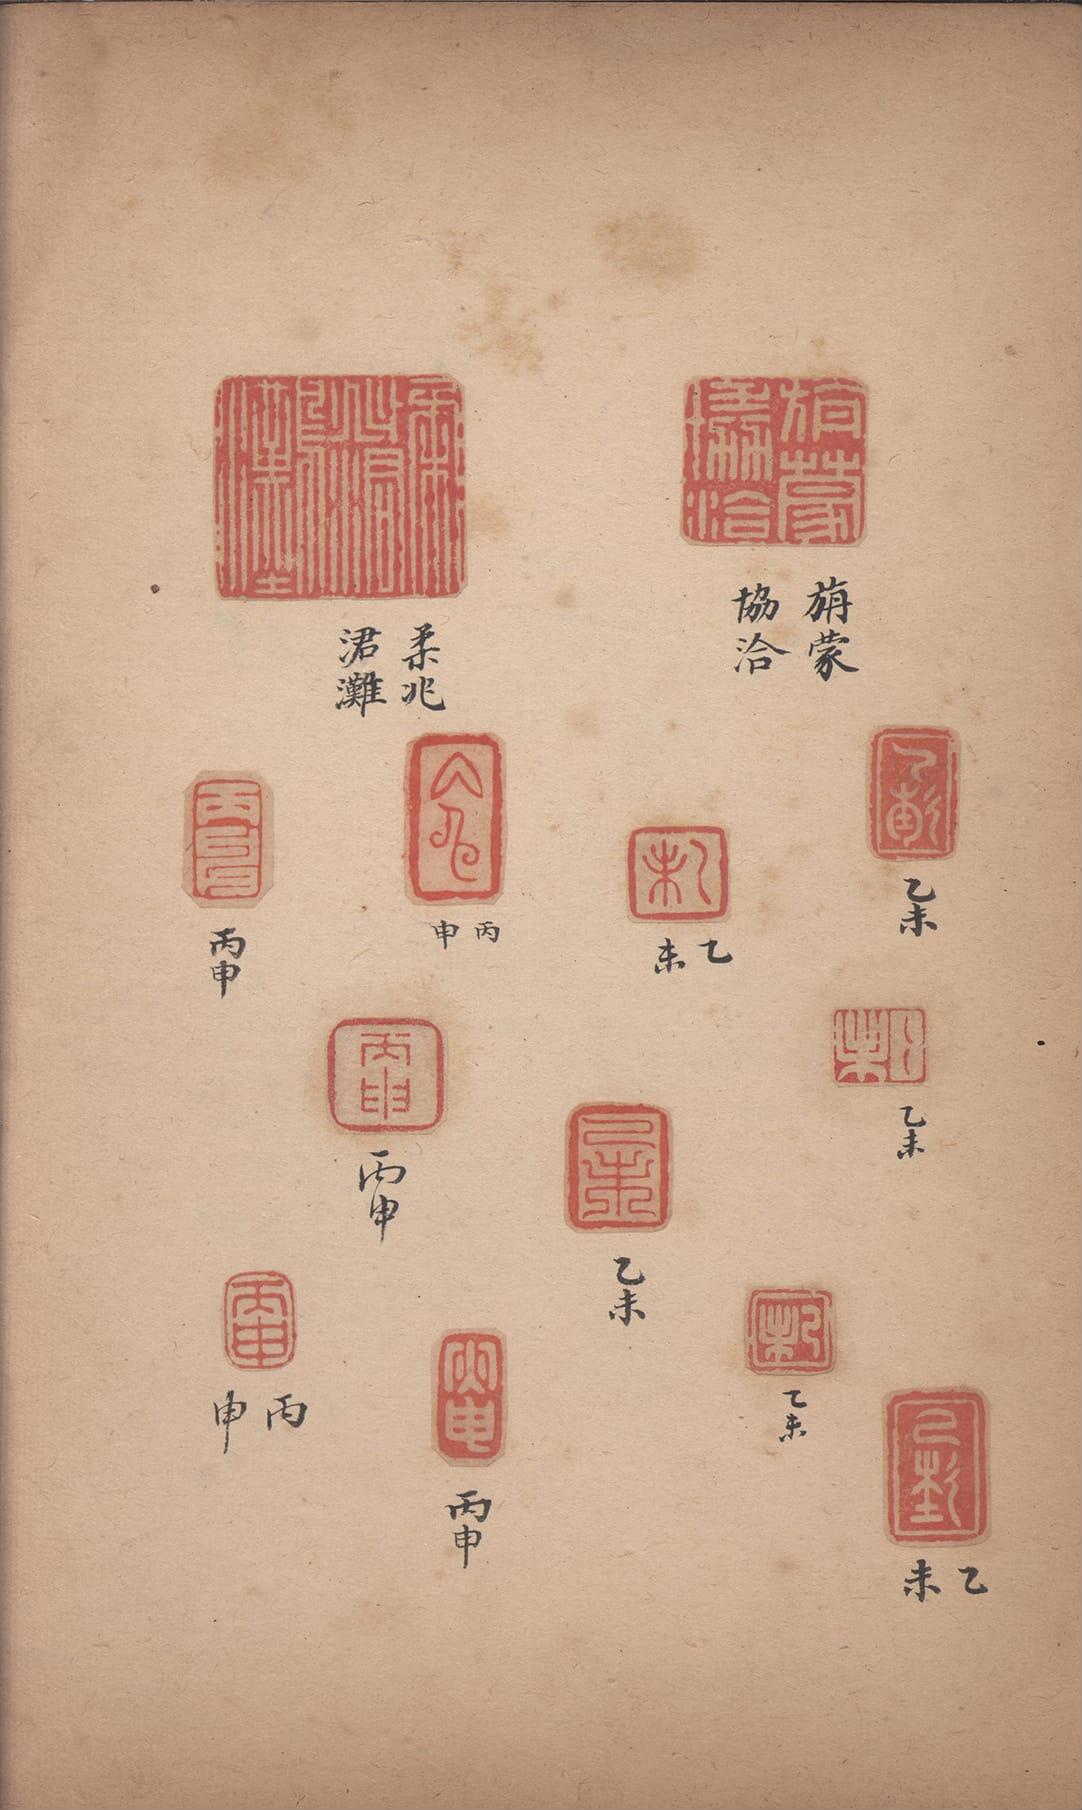 旃蒙
協洽
柔兆
涒灘
乙未
乙未
丙申
丙申
乙未
丙申
乙未
乙未
丙申
丙申
乙未